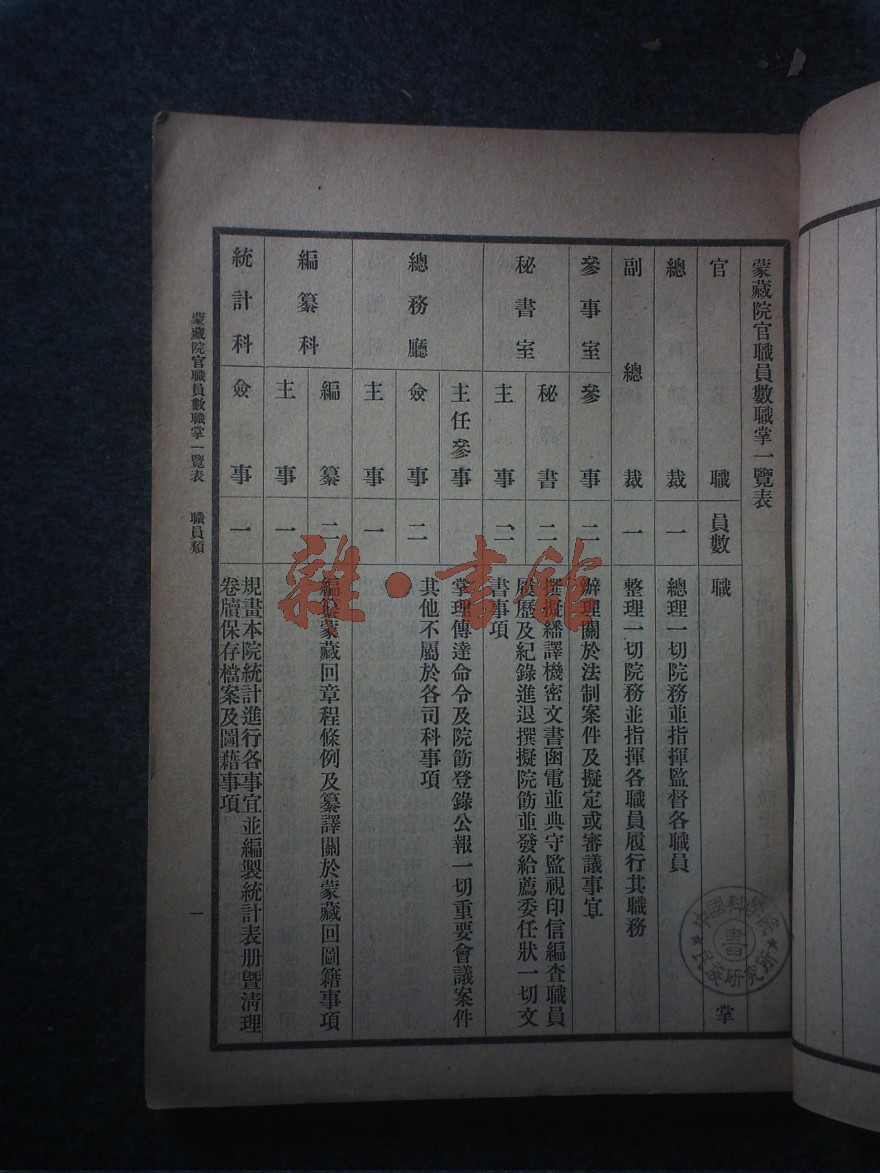 蒙藏院官職員數職掌一覽表
官職 員數 職掌
總裁 一 總理一切院務並指揮監督各職員
副總裁 一 整理一切院務並指揮各職員履行其職務
參事室 參事 二 辦理關於法制案件及擬定或審議事宜
秘書室 秘書 二 撰擬繙譯機密文書函電並典守監視印信編查職員
履歷及紀錄進退撰擬院飭並發給薦委任狀一切文
主事 二 書事項
總務廳 主任參事 掌理傳達命令及院飭登錄公報一切重要會議案件
僉事 二 其他不屬於各司科事項
主事 一
編纂科 編纂 二 編纂蒙藏回章程條例及纂譯關於蒙藏回圖籍事項
主事 一
統計科 僉事 一 規畫本院統計進行各事宜並編製統計表册暨清理
卷牘保存檔案及圖藉事項
蒙藏院官職員數職掌一覽表 職員類 一
中國科學院民族研究所
書
雜·書館